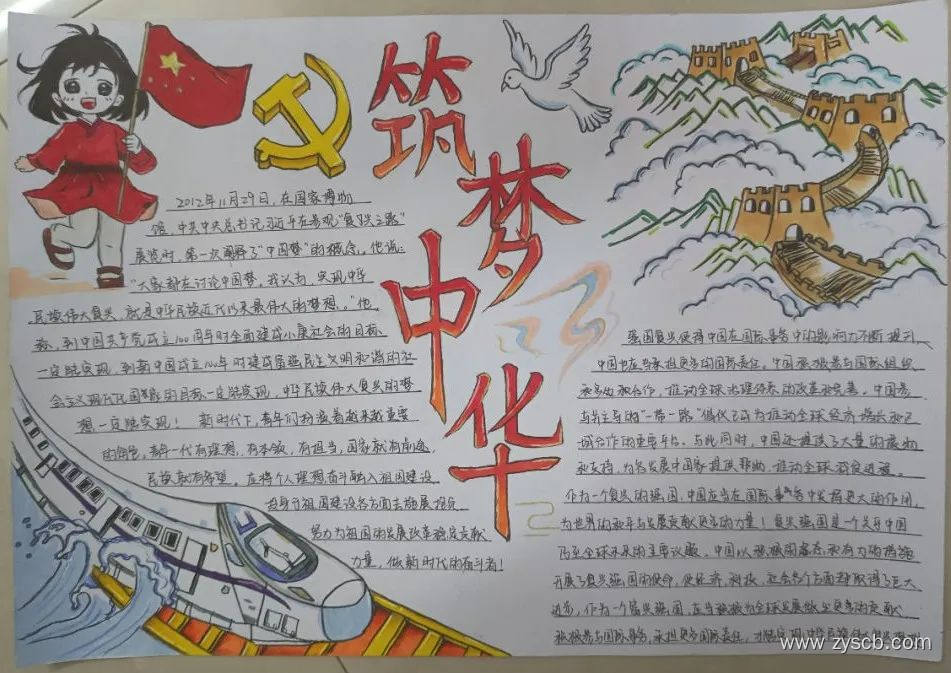 筑
梦
中
华
2012年11月29日，在国家博物
馆，中共中央总书记习近平在参观“复兴之路”
展览时，第一次阐释了“中国梦”的概念。他说：
“大家都在讨论中国梦。我认为，实现中华
民族伟大复兴，就是中华民族近代以来最伟大的梦想。”他
称，到中国共产党成立100周年时全面建成小康社会的目标
一定能实现，到新中国成立100年时建成富强民主文明和谐的社
会主义现代化国家的目标一定能实现，中华民族伟大复兴的梦
想一定能实现！ 新时代下，青年们扮演着越来越重要
的角色，青年一代有理想，有本领，有担当，国家就有前途，
民族就有希望。在将个人理想奋斗融入祖国建设
投身于祖国建设各方面去施展抱负
努力为祖国的发展改革稳定贡献
力量，做新时代的奋斗者！
强国复兴使得中国在国际事务中的影响力不断提升，
中国也应当承担更多的国际责任。中国积极参与国际组织
和多边和合作，推动全球治理体系的改革和完善。中国参
与并主导的“一带一路”倡议已成为推动全球经济增长和区
域合作的重要平台。与此同时，中国还提供了大量的援助
和支持，为各发展中国家提供帮助，推动全球
作为一个复兴的强国，中国应当在国际事务中发挥更大的作用，
为世界的和平与发展贡献更多的力量！复兴强国是一个关乎中国
乃至全球未来的重要议题。中国以积极的态度和有力的措施
开展了复兴强国的使命，使经济、科技、社会各个方面都取得了巨大
进步，作为一个复兴强国，应当积极为全球发展做出更多的贡献
积极参与国际事务，承担更多国际责任，才能实现中华民族伟大复兴
www.zyscb.com